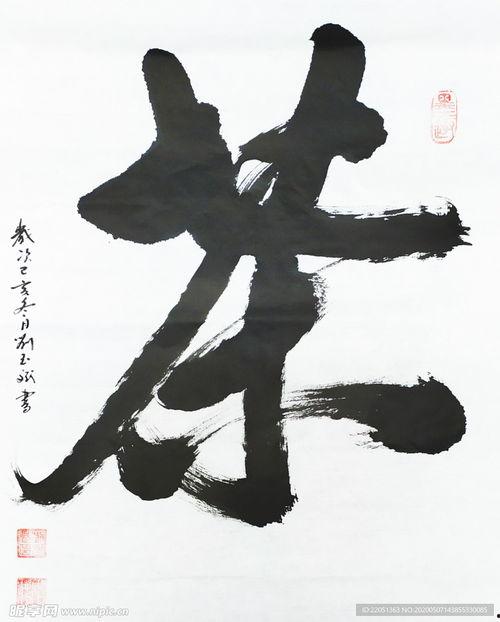 茶
歲次己亥冬月刘玉斌書
昵享网 www.nipic.cn
ID:22051363 NO:20200507143855330085